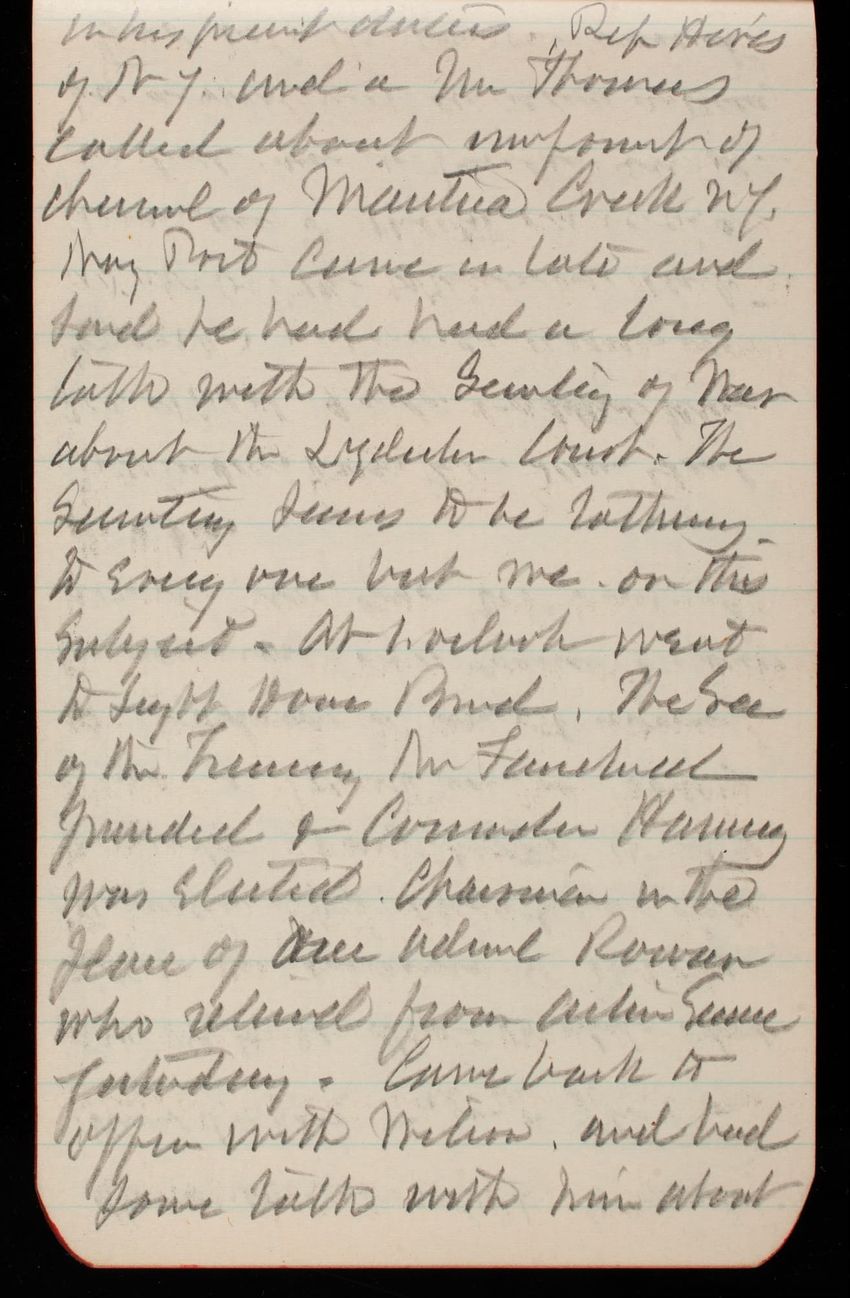 in his present duties. Rep
of N Y. and a Mr Thomas
called about improvmt of
channel of Mantua Creek N Y.
Maj Post came in late and
said he had had a long
talk with the Secretary of War
about the Lydecker Court. The
Secretary seems to be talking
to every one but me on this
subject. At 1 oclock went
to Light House Board. The Sec
of the Treasury Mr Fairchild
presided & Commodore Harmony
was elected Chairman in the
place of Admrl Rowan
who retired from active
yesterday. Came back to
office with Wilson. and had
some talk with him about